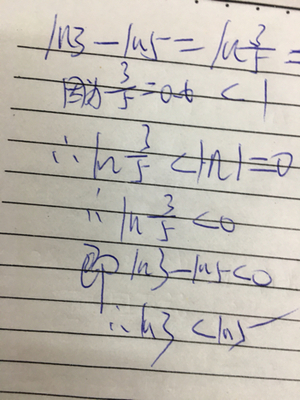 ln3-ln5=ln3/5=
因为3/5=0.6<1
∴ln3/5<ln1=0
∴ln3/5<0
即ln3-ln5<0
∴ln3<ln5